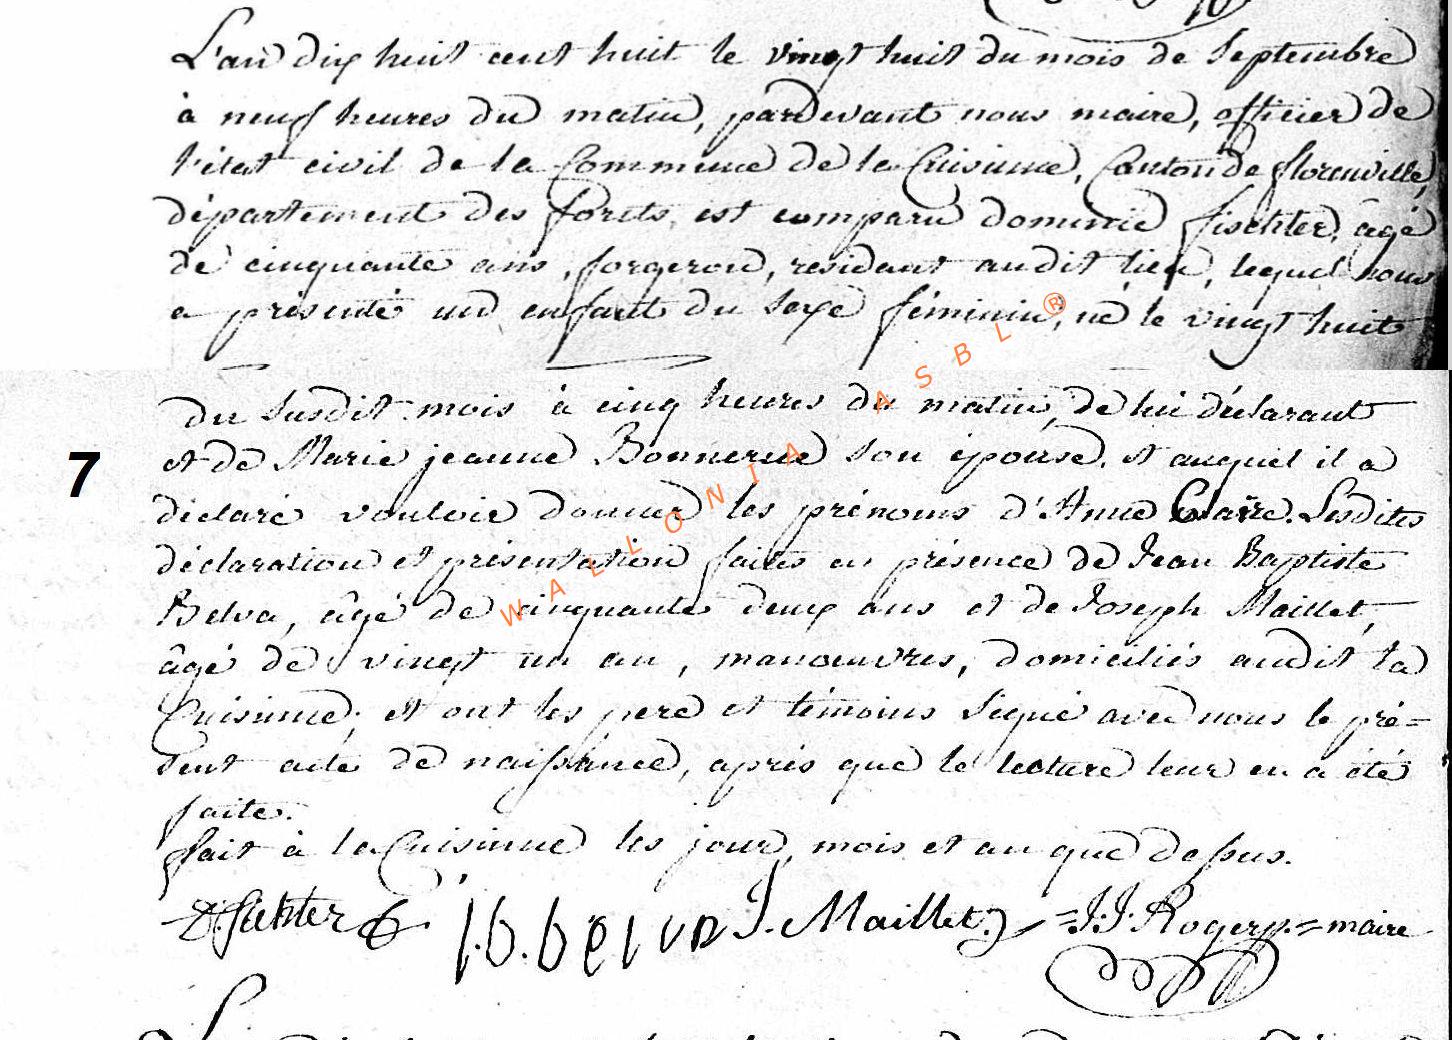 L'an dix huit cent huit le vingt huit du mois de Septembre
à neuf heures du matin, pardevant nous maire, officier de
l'état civil de la Commune de la Cuisinne, Canton de florenville,
département des forêts, est comparu dominic fischter, âgé
de cinquante ans, forgeron, residant audit lieu, lequel nous
a présenté und enfant du sexe féminin, né le vingt huit
du susdit mois à cinq heures du matin, de lui déclarant
et de Marie jeanne Bonnerue son épouse. et auquel il a
déclaré vouloir donner les prénoms d'Anne Claire. Lesdites
déclaration et présentation faites en présence de Jean Baptiste
Belva, âgé de cinquante deux ans et de Joseph Maillet,
âgé de vingt un an, manœuvres, domiciliés audit la
Cuisinne; et ont les pere et témoins signé avec nous le pré=
sent acte de naissance, après que la lecture leur en a été
faite.
fait à la Cuisinne les jour, mois et an que dessus.
D. fichter j.b.belva J. Maillet =J.J. Roger =maire
7
WALLONIA ASBL ®